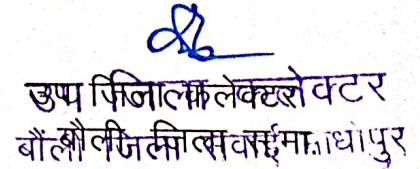 उप जिला कलेक्टर
बौंली जिला सवाईमाधोपुर